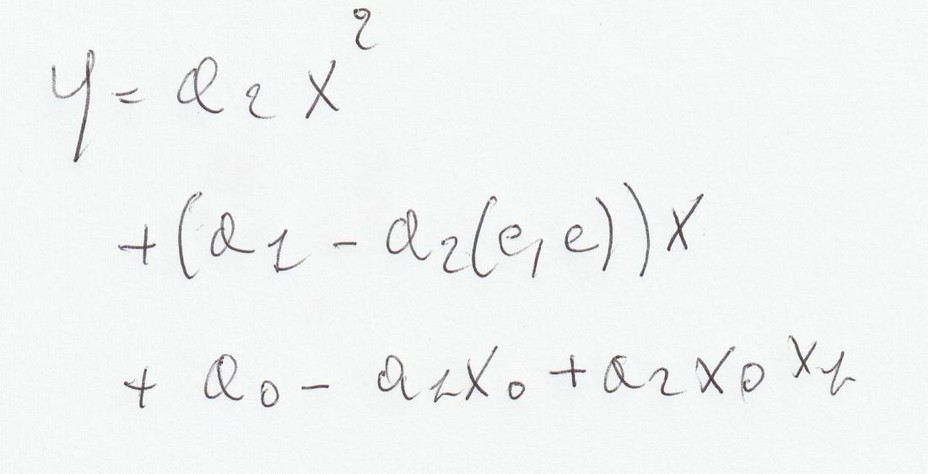 y = a₂ x²
+ (a₁ - a₂(e, e)) x
+ a₀ - a₁x₀ + a₂ x₀ x₁